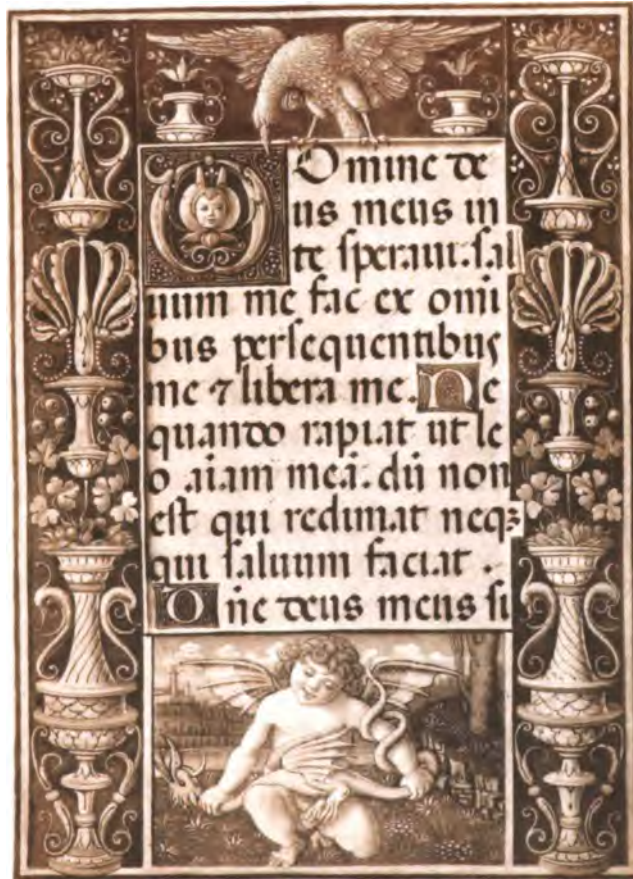 Domine de
us meus in
te speraui. sal
uum me fac ex omi
bus persequentibus
me ⁊ libera me. Ne
quando rapiat ut le
o aiam meā. dū non
est qui redimat neqꝫ
qui saluum faciat.
Dne deus meus si